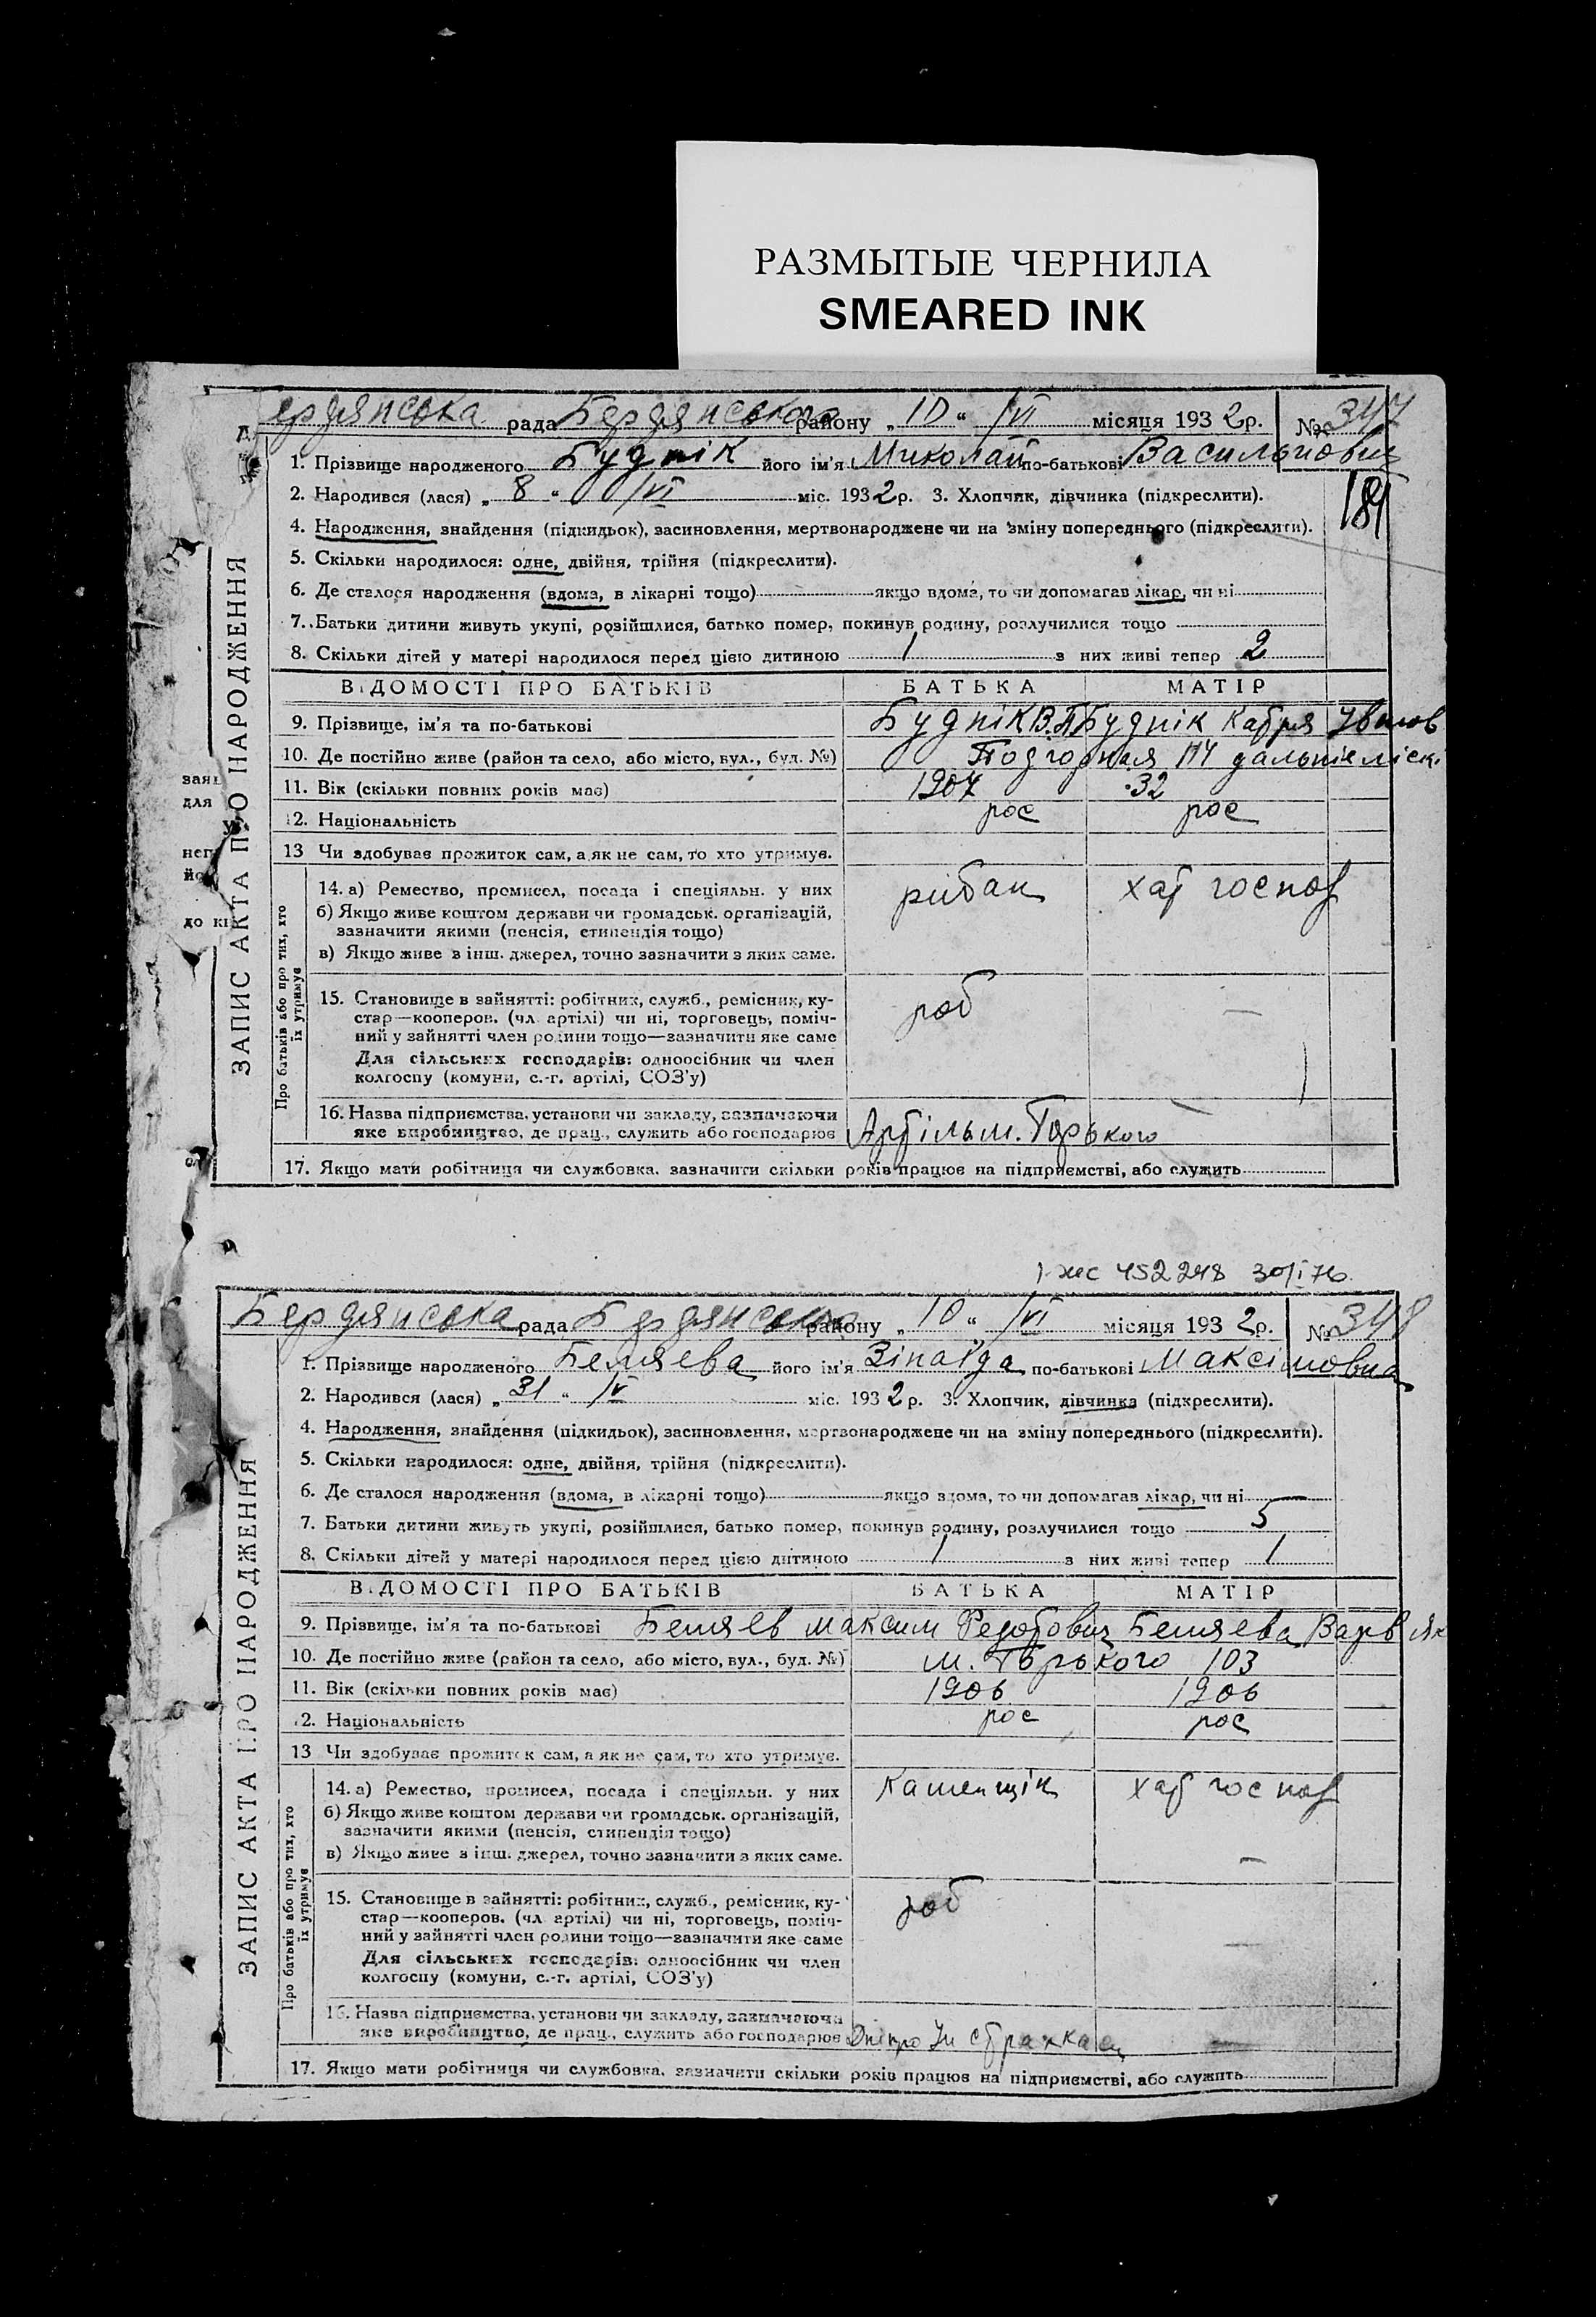 РАЗМЫТЫЕ ЧЕРНИЛА
SMEARED INK
ердянська рада Бердянського району „ 10 “ /VI місяця 1932 р. № 347
1. Прізвище народженого Буднік його ім'я Миколай по-батькові Васильйович
2. Народився (лася) „ 8 “ /VI міс. 1932 р. 3. Хлопчик, дівчинка (підкреслити).
4. Народження, знайдення (підкидьок), засиновлення, мертвонароджене чи на зміну попереднього (підкреслити).
5. Скільки народилося: одне, двійня, трійня (підкреслити).
6. Де сталося народження (вдома, в лікарні тощо) якщо вдома, то чи допомагав лікар, чи ні
7. Батьки дитини живуть укупі, розійшлися, батько помер, покинув родину, розлучилися тощо
8. Скільки дітей у матері народилося перед цією дитиною 1 з них живі тепер 2
ВІДОМОСТІ ПРО БАТЬКІВ БАТЬКА МАТІР
9. Прізвище, ім'я та по-батькові Буднік В.П. Буднік
10. Де постійно живе (район та село, або місто, вул., буд. №) Подгорная
11. Вік (скільки повних років має) 1907 32
12. Національність рос рос
13 Чи здобуває прожиток сам, а як не сам, то хто утримує.
14. а) Ремество, промисел, посада і спеціяльн. у них рибак хат господ
б) Якщо живе коштом держави чи громадськ. організацій,
зазначити якими (пенсія, стипендія тощо)
в) Якщо живе з інш. джерел, точно зазначити з яких саме.
15. Становище в зайнятті: робітник, служб., ремісник, ку- роб —
стар—кооперов. (чл. артілі) чи ні, торговець, поміч-
ний у зайнятті член родини тощо—зазначити яке саме
Для сільських господарів: одноосібник чи член
колгоспу (комуни, с.-г. артілі, СОЗ'у)
16. Назва підприємства, установи чи закладу, зазначаючи
яке виробництво, де прац., служить або господарює Артіль ш. Горького
17. Якщо мати робітниця чи службовка, зазначити скільки років працює на підприємстві, або служить
ЗАПИС АКТА ПРО НАРОДЖЕННЯ
Про батьків або про тих, хто
їх утримує
452248 30/I 76
Бердянська рада Бердянського району „ 10 “ /VI місяця 1932 р. № 348
1. Прізвище народженого Беляева його ім'я Зінаїда по-батькові Максімовна
2. Народився (лася) „ 31 “ /V міс. 1932 р. 3. Хлопчик, дівчинка (підкреслити).
4. Народження, знайдення (підкидьок), засиновлення, мертвонароджене чи на зміну попереднього (підкреслити).
5. Скільки народилося: одне, двійня, трійня (підкреслити).
6. Де сталося народження (вдома, в лікарні тощо) якщо вдома, то чи допомагав лікар, чи ні
7. Батьки дитини живуть укупі, розійшлися, батько помер, покинув родину, розлучилися тощо 5
8. Скільки дітей у матері народилося перед цією дитиною 1 з них живі тепер 1
ВІДОМОСТІ ПРО БАТЬКІВ БАТЬКА МАТІР
9. Прізвище, ім'я та по-батькові Беляев Максим Федотович Беляева Варв
10. Де постійно живе (район та село, або місто, вул., буд. №) М. Горького 103
11. Вік (скільки повних років має) 1906 1906
12. Національність рос рос
13 Чи здобуває прожиток сам, а як не сам, то хто утримує.
14. а) Ремество, промисел, посада і спеціяльн. у них каменщік хат господ
б) Якщо живе коштом держави чи громадськ. організацій,
зазначити якими (пенсія, стипендія тощо)
в) Якщо живе з інш. джерел, точно зазначити з яких саме. —
15. Становище в зайнятті: робітник, служб., ремісник, ку- роб
стар—кооперов. (чл. артілі) чи ні, торговець, поміч-
ний у зайнятті член родини тощо—зазначити яке саме —
Для сільських господарів: одноосібник чи член
колгоспу (комуни, с.-г. артілі, СОЗ'у)
16. Назва підприємства, установи чи закладу, зазначаючи
яке виробництво, де прац., служить або господарює Дніпро
17. Якщо мати робітниця чи службовка, зазначити скільки років працює на підприємстві, або служить
ЗАПИС АКТА ПРО НАРОДЖЕННЯ
Про батьків або про тих, хто
їх утримує